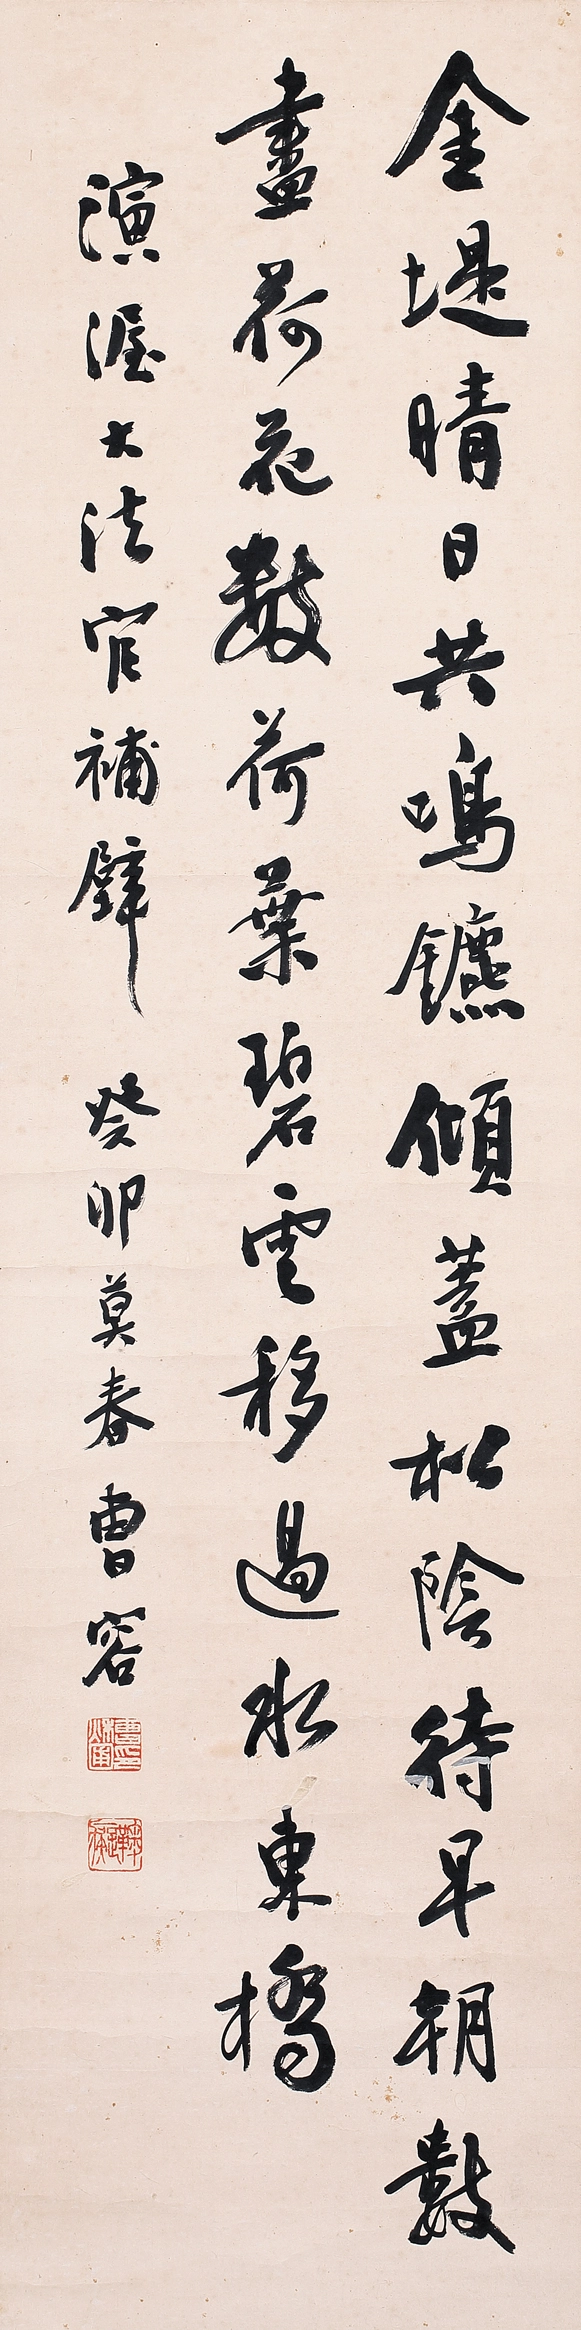 金堤晴日共鳴鑣傾蓋松陰待早朝數
盡荷花數荷葉碧雲移過水東橋
演渥大法官補壁 癸卯莫春曹容